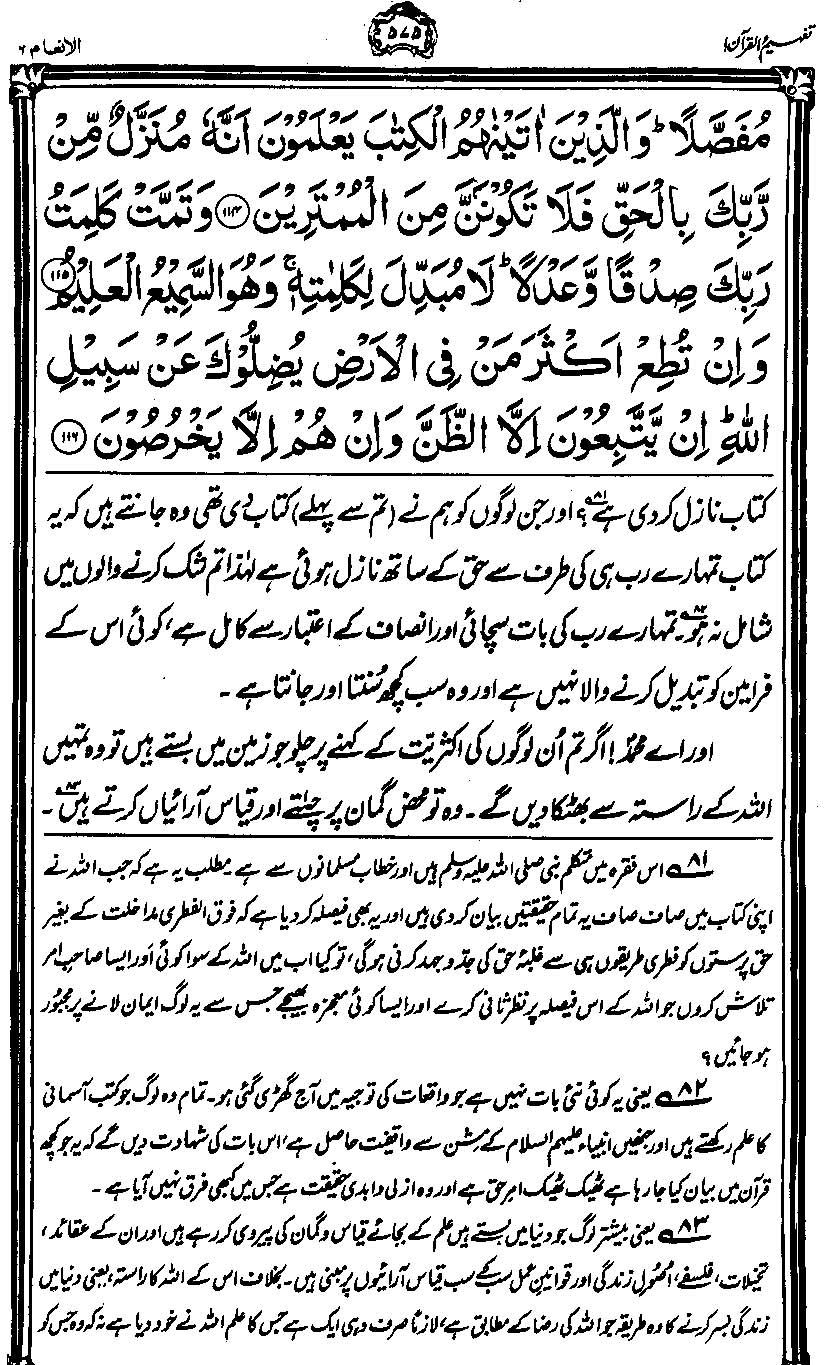 تفہیم القرآن ۱
۵۷۵
الانعام ۶
مُفَصَّلًا ؕ وَالَّذِیْنَ اٰتَیْنٰهُمُ الْکِتٰبَ یَعْلَمُوْنَ اَنَّهٗ مُنَزَّلٌ مِّنْ
رَّبِّکَ بِالْحَقِّ فَلَا تَکُوْنَنَّ مِنَ الْمُمْتَرِیْنَ ﴿۱۱۴﴾ وَتَمَّتْ کَلِمَتُ
رَبِّکَ صِدْقًا وَّعَدْلًا ؕ لَا مُبَدِّلَ لِکَلِمٰتِهٖ ۚ وَهُوَ السَّمِیْعُ الْعَلِیْمُ ﴿۱۱۵﴾
وَاِنْ تُطِعْ اَکْثَرَ مَنْ فِی الْاَرْضِ یُضِلُّوْکَ عَنْ سَبِیْلِ
اللّٰهِ ؕ اِنْ یَّتَّبِعُوْنَ اِلَّا الظَّنَّ وَاِنْ هُمْ اِلَّا یَخْرُصُوْنَ ﴿۱۱۶﴾
کتاب نازل کر دی ہے۸۱؟ اور جن لوگوں کو ہم نے (تم سے پہلے) کتاب دی تھی وہ جانتے ہیں کہ یہ
کتاب تمہارے رب ہی کی طرف سے حق کے ساتھ نازل ہوئی ہے لہٰذا تم شک کرنے والوں میں
شامل نہ ہو۸۲۔ تمہارے رب کی بات سچائی اور انصاف کے اعتبار سے کامل ہے، کوئی اس کے
فرامین کو تبدیل کرنے والا نہیں ہے اور وہ سب کچھ سُنتا اور جانتا ہے۔
اور اے محمدؐ! اگر تم اُن لوگوں کی اکثریّت کے کہنے پر چلو جو زمین میں بستے ہیں تو وہ تمہیں
اللہ کے راستہ سے بھٹکا دیں گے۔ وہ تو محض گمان پر چلتے اور قیاس آرائیاں کرتے ہیں۸۳۔
۸۱ اس فقرہ میں متکلم نبی صلی اللہ علیہ وسلم ہیں اور خطاب مسلمانوں سے ہے۔ مطلب یہ ہے کہ جب اللہ نے
اپنی کتاب میں صاف صاف یہ تمام حقیقتیں بیان کر دی ہیں اور یہ بھی فیصلہ کر دیا ہے کہ فوق الفطری مداخلت کے بغیر
حق پرستوں کو فطری طریقوں ہی سے غلبۂ حق کی جدوجہد کرنی ہوگی، تو کیا اب میں اللہ کے سوا کوئی اَور ایسا صاحبِ امر
تلاش کروں جو اللہ کے اس فیصلہ پر نظر ثانی کرے اور ایسا کوئی معجزہ بھیجے جس سے یہ لوگ ایمان لانے پر مجبُور
ہو جائیں؟
۸۲ یعنی یہ کوئی نئی بات نہیں ہے جو واقعات کی توجیہ میں آج گھڑی گئی ہو۔ تمام وہ لوگ جو کتب آسمانی
کا علم رکھتے ہیں اور جنھیں انبیاء علیہم السلام کے مِشن سے واقفیت حاصل ہے، اس بات کی شہادت دیں گے کہ یہ جو کچھ
قرآن میں بیان کیا جا رہا ہے ٹھیک ٹھیک امرِ حق ہے اور وہ ازلی و ابدی حقیقت ہے جس میں کبھی فرق نہیں آیا ہے۔
۸۳ یعنی بیشتر لوگ جو دنیا میں بستے ہیں علم کے بجائے قیاس و گمان کی پیروی کر رہے ہیں اور ان کے عقائد،
تخیلات، فلسفے، اُصُولِ زندگی اور قوانینِ عمل سب کے سب قیاس آرائیوں پر مبنی ہیں۔ بخلاف اس کے اللہ کا راستہ، یعنی دنیا میں
زندگی بسر کرنے کا وہ طریقہ جو اللہ کی رضا کے مطابق ہے، لازمًا صرف وہی ایک ہے جس کا علم اللہ نے خود دیا ہے نہ کہ وہ جس کو